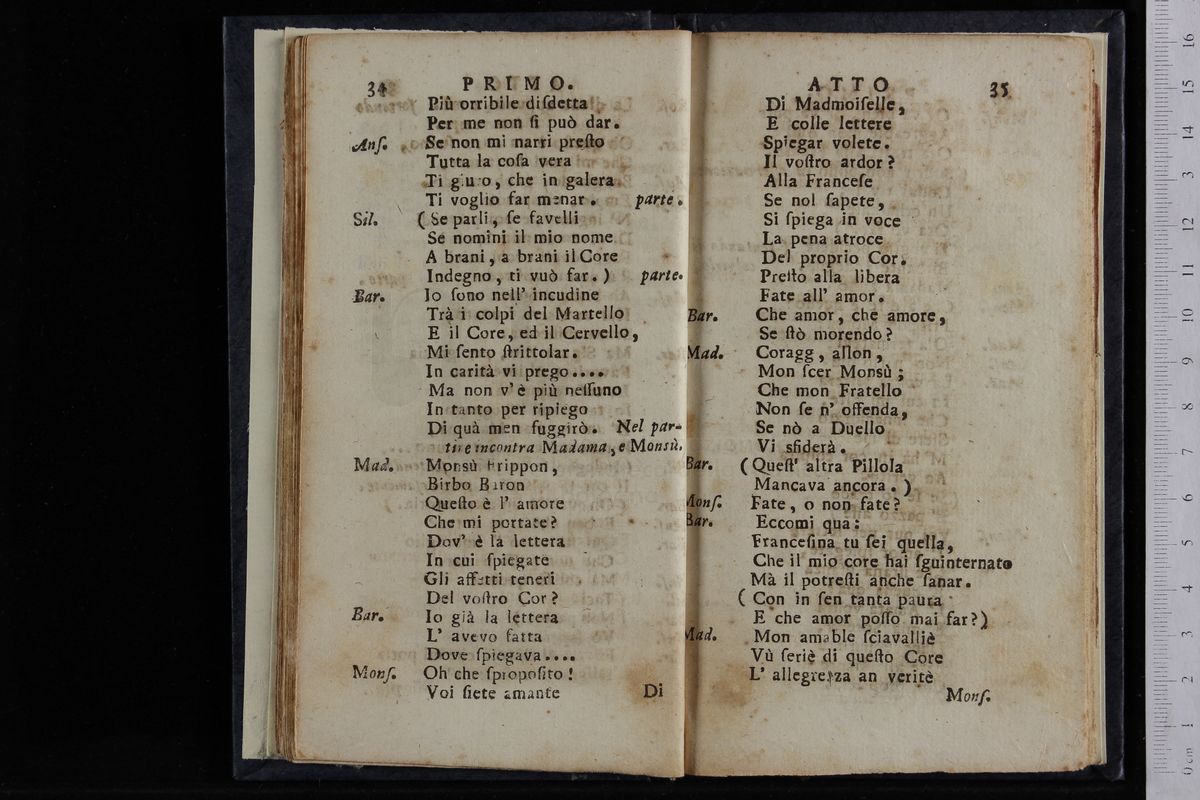 34 PRIMO.
Più orribile diſdetta
Per me non ſi può dar.
Anſ. Se non mi narri preſto
Tutta la coſa vera
Ti giuro, che in galera
Ti voglio far menar. parte.
Sil. (Se parli, ſe favelli
Se nomini il mio nome
A brani, a brani il Core
Indegno, ti vuò far.) parte.
Bar. Io ſono nell' incudine
Trà i colpi del Martello
E il Core, ed il Cervello,
Mi ſento ſtrittolar.
In carità vi prego....
Ma non v'è più neſſuno
In tanto per ripiego
Di quà men fuggirò. Nel par-
tire incontra Madama, e Monsù.
Mad. Monsù Frippon,
Birbo Baron
Queſto è l' amore
Che mi portate?
Dov' è la lettera
In cui ſpiegate
Gli affetti teneri
Del voſtro Cor?
Bar. Io già la lettera
L' avevo fatta
Dove ſpiegava....
Monſ. Oh che ſpropoſito!
Voi ſiete amante Di
ATTO 35
Di Madmoiſelle,
E colle lettere
Spiegar volete.
Il voſtro ardor?
Alla Franceſe
Se nol ſapete,
Si ſpiega in voce
La pena atroce
Del proprio Cor.
Preſto alla libera
Fate all' amor.
Bar. Che amor, che amore,
Se ſtò morendo?
Mad. Coragg, allon,
Mon ſcer Monsù;
Che mon Fratello
Non ſe n' offenda,
Se nò a Duello
Vi sfiderà.
Bar. (Queſt' altra Pillola
Mancava ancora.)
Monſ. Fate, o non fate?
Bar. Eccomi qua:
Franceſina tu ſei quella,
Che il mio core hai ſguinternato
Mà il potreſti anche ſanar.
(Con in ſen tanta paura
E che amor poſſo mai far?)
Mad. Mon amable ſciavalliè
Vù ferìè di queſto Core
L' allegrezza an veritè
Monſ.